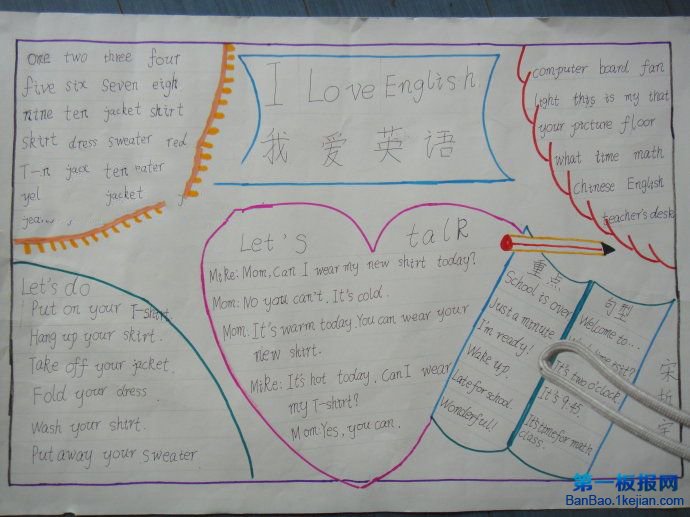 one two three four
five six seven eigh
nine ten jacket shirt
skirt dress sweater red
T-n jack ten eater
yel jacket
I Love English
我 爱 英 语
computer board fan
light this is my that
your picture floor
what time math
Chinese English
teacher's desk
Let's do
Put on your T-shirt.
Hang up your skirt.
Take off your jacket.
Fold your dress
Wash your shirt.
Put away your sweater
Let's talk
Mike: Mom. Can I wear my new shirt today?
Mom: No you can't. It's cold.
Mom: It's warm today. You can wear your
new shirt.
Mike: It's hot today. Can I wear
my T-shirt?
Mom: Yes, you can.
重点
School is over
Just a minute
I'm ready!
Wake up.
Late for school.
Wonderful!
句型
Welcome to....
It's two o'clock
It's 9:45.
It's time for math
class.
宋
第一板报网
BanBao.1kejian.com